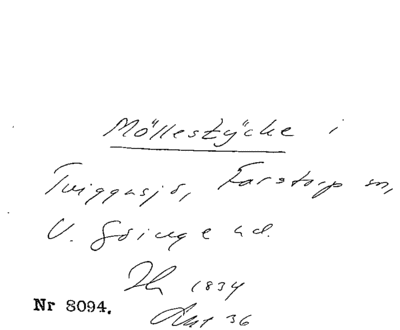 Möllestÿcke i
Tviggasjö, Farstorp sn,
V. Göinge hd.
1834
Nr 8094.
36